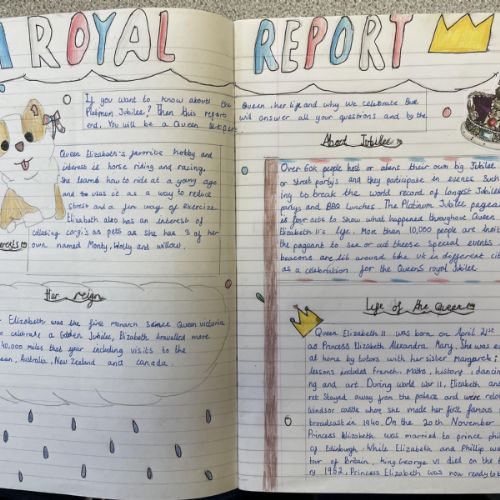 A ROYAL REPORT
If you want to know about the Queen, her life and why we celebrate the
Platinum Jubilee? Then this report will answer all your questions and by the
end, You will be a Queen
Queen Elizabeth's favorite hobby and
interest is horse riding and racing.
She learnd how to ride at a young age
and to was it as a way to reduce
stress and a fun way of exercise.
Elizabeth also has an interest of
collecting corgi's as pets as she has 3 of her
own named Monty, Holly and willow.
Interests
Her reign
Elizabeth was the first monarch seince Queen victoria
celebrate a Golden Jubilee, Elizabeth travelled more
40,000 miles that year including visits to the
Australia, New Zealand and canada.
About Jubilee
Over 60k people host or atent their own big Jubilee
or Street party's and they participate in events such
ing to break the world record of longest Jubilee
partys and BBQ Lunches. The Platinum Jubilee pageant
is four acts to show what happened throughout Queen
Elizabeth II's life. More than 10,000 people are
the pageant to see or out theese special events
beacons are lit around the UK in different
as a celebration for the Queens royal Jubilee.
Life of the Queen
Queen Elizabeth II was born on April 21st
as Princess Elizabeth Alexandra Mary. She was
at home by tutors with her sister Margaret;
lessons included french, Maths, history, dancing
ing and art. During world war II, Elizabeth and
ret Stayed away from the palace and were
Windsor castle where she made her first famous
broadcast in 1940. On the 20th November
Princess Elizabeth was married to prince
of Edinburgh. While Elizabeth and Phillip
tour of Britain, King George VI died on the
of 1952, Princess Elizabeth was now ready to